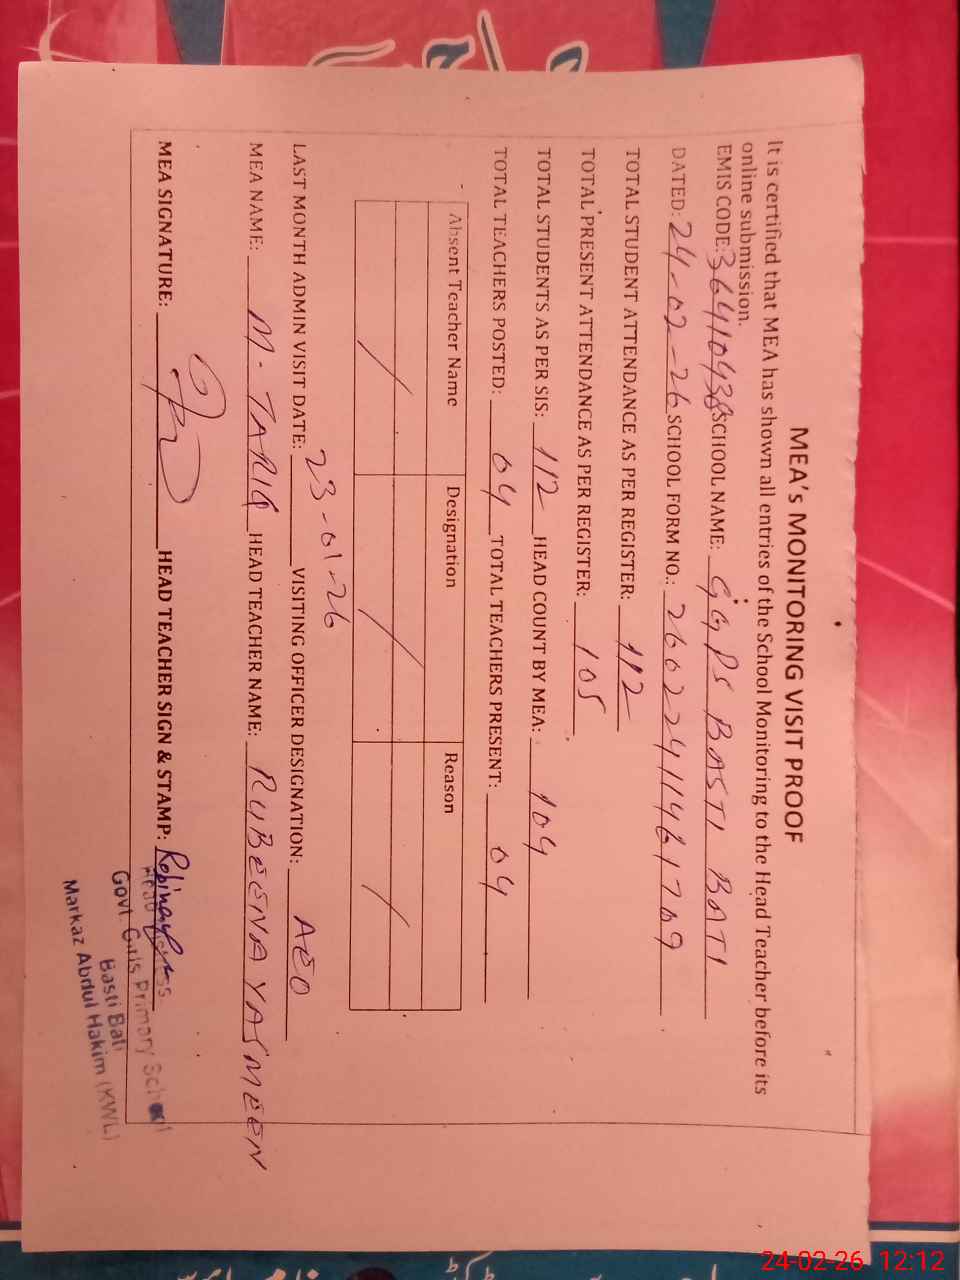 MEA's MONITORING VISIT PROOF
It is certified that MEA has shown all entries of the School Monitoring to the Head Teacher before its
online submission.
EMIS CODE: 36410438 SCHOOL NAME: GGPS BASTI BATI
DATED: 24-02-26 SCHOOL FORM NO.: 26022411461709
TOTAL STUDENT ATTENDANCE AS PER REGISTER: 112
TOTAL PRESENT ATTENDANCE AS PER REGISTER: 105
TOTAL STUDENTS AS PER SIS: 112 HEAD COUNT BY MEA: 104
TOTAL TEACHERS POSTED: 04 TOTAL TEACHERS PRESENT: 04
Absent Teacher Name Designation Reason
/ / /
LAST MONTH ADMIN VISIT DATE: 23-01-26 VISITING OFFICER DESIGNATION: AEO
MEA NAME: M. TARIQ HEAD TEACHER NAME: RUBEENA YASMEEN
MEA SIGNATURE: HEAD TEACHER SIGN & STAMP:
Govt. Girls Primary School
Basti Bati
Markaz Abdul Hakim (KWL)
24-02-26 12:12